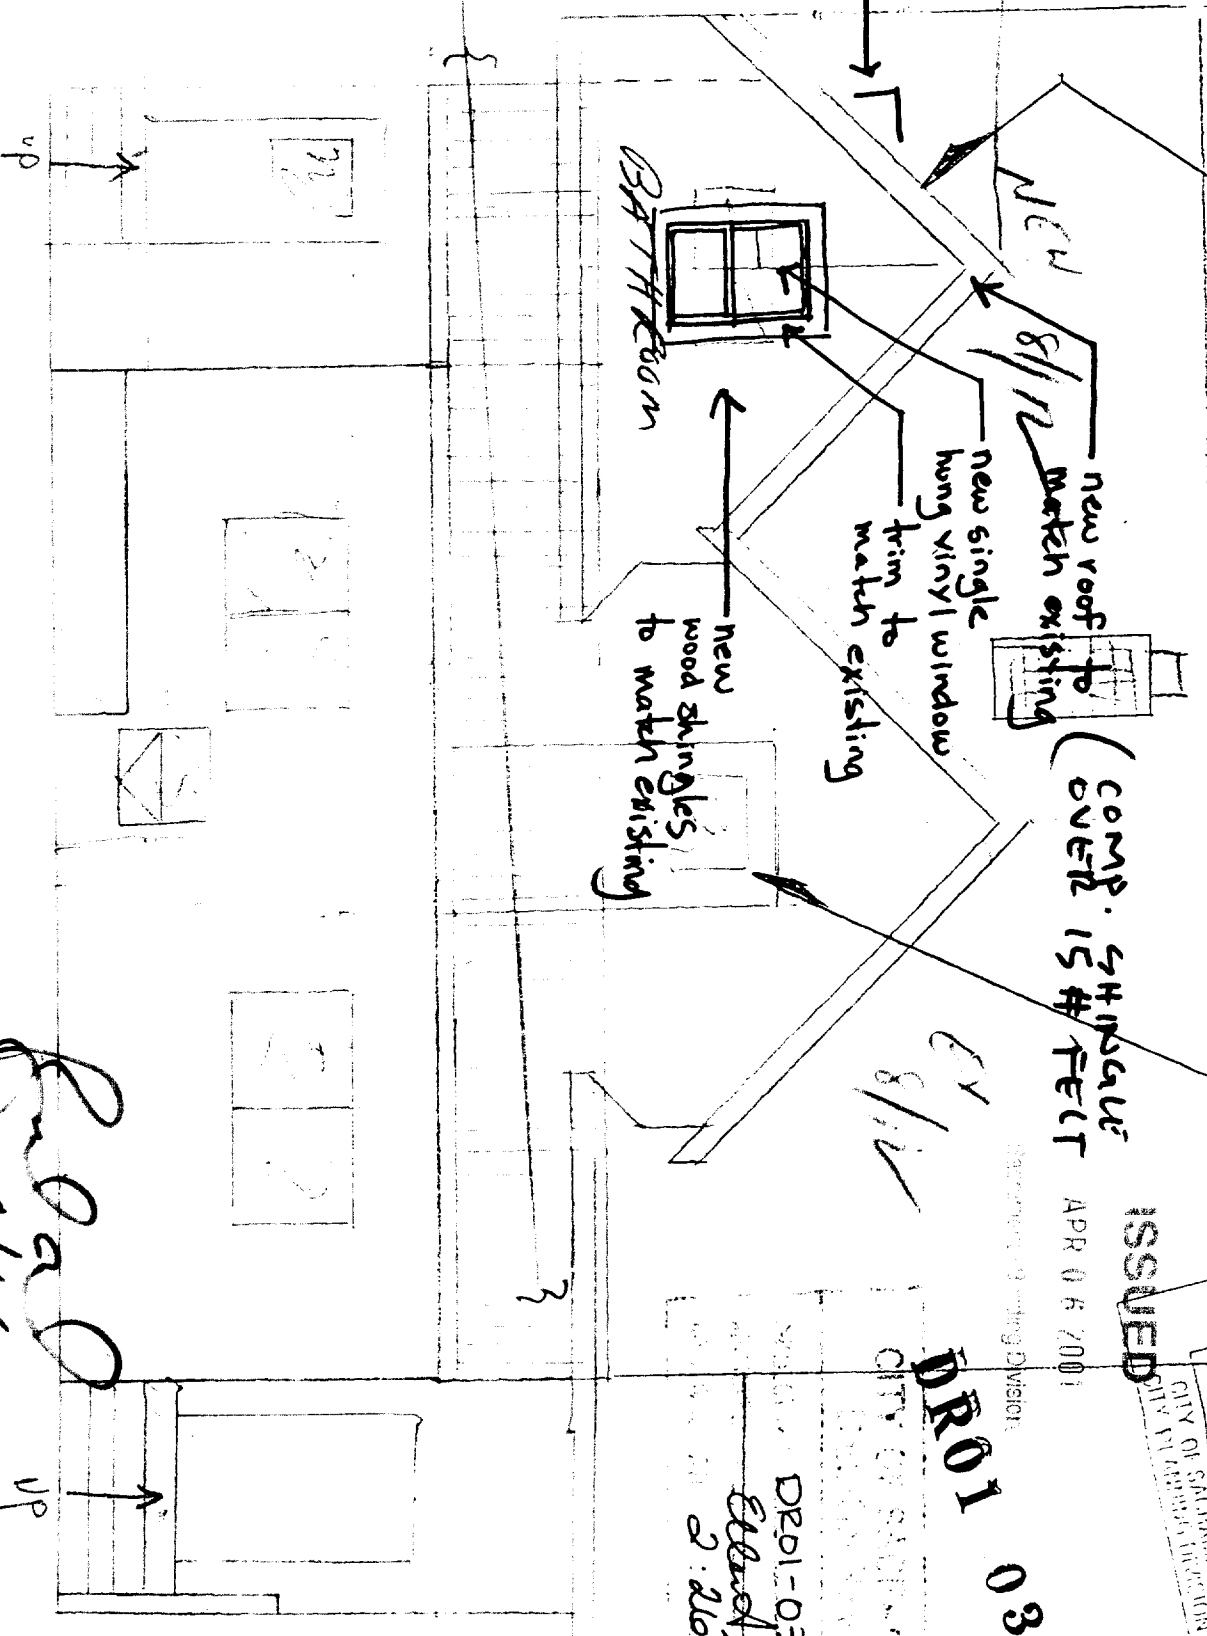 NEW
8/12
new roof to
match existing
(COMP. SHINGLE
OVER 15# FELT
new single
hung vinyl window
trim to
match existing
new
wood shingles
to match existing
BATHROOM
EX
8/12
UP
UP
ISSUED
APR 06 2001
Division
CITY OF
CITY PLANNING DIVISION
DR01 03
CITY OF
DR01-03
2:26